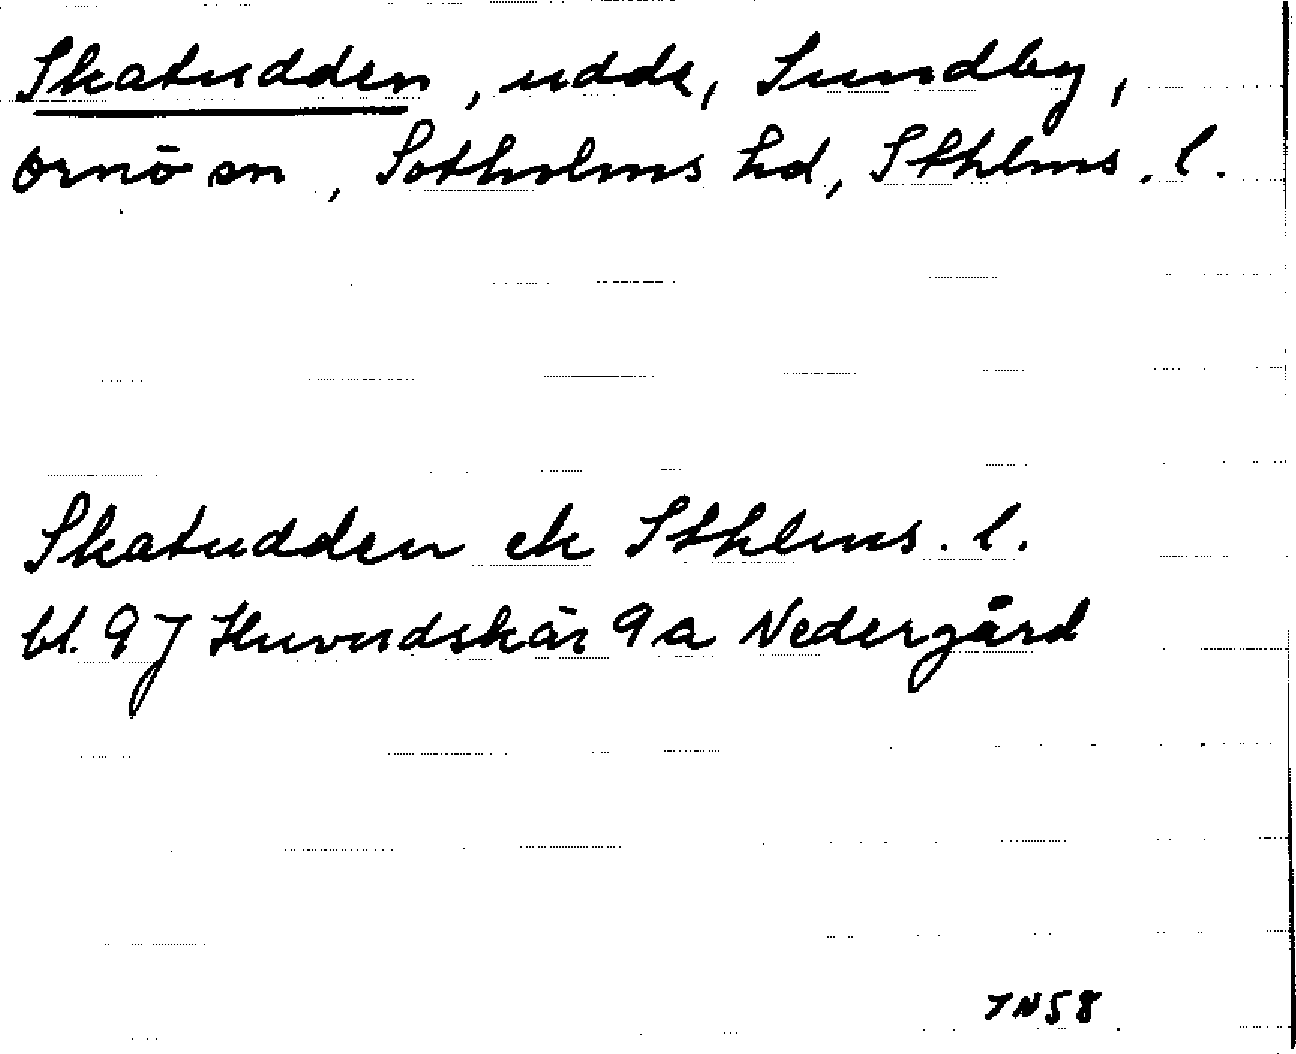 Skatudden, udde, Sundby,
Ornö sn, Sotholms hd, Sthlms. l.
Skatudden ek Sthlms. l.
bl. 97 Huvudskär 9a Nedergård
TN58